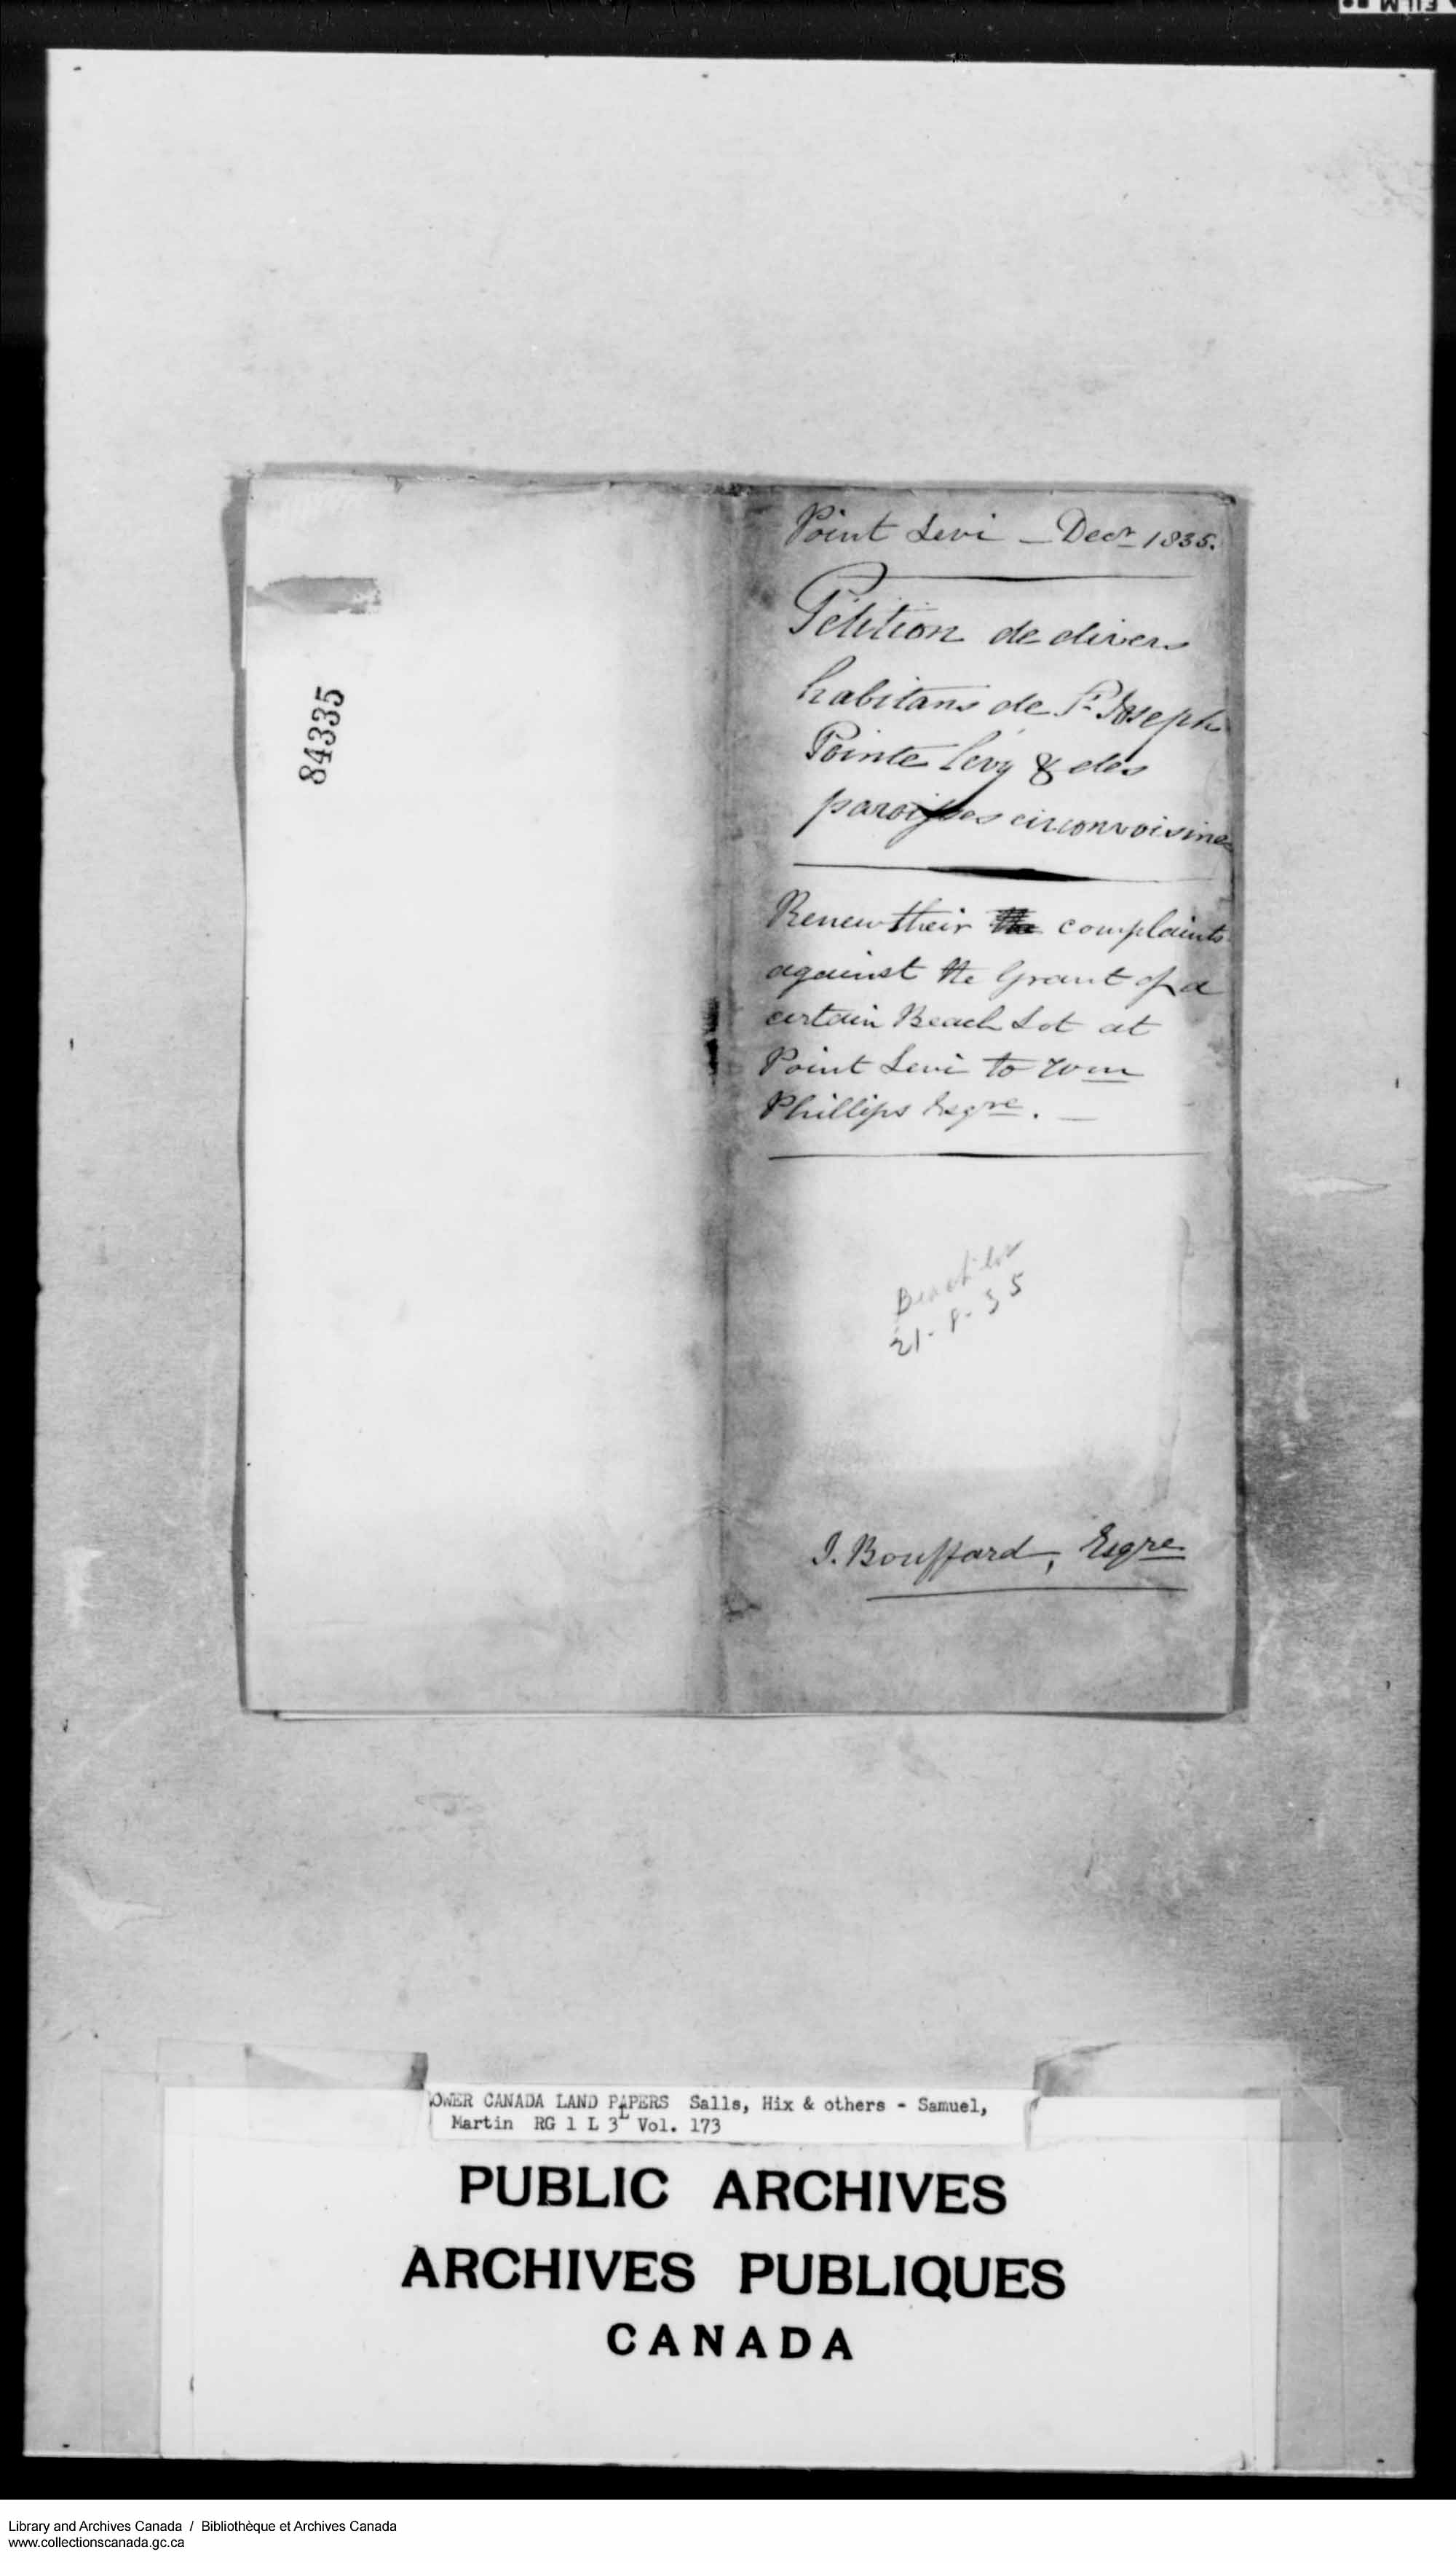 84335
Point Levi — Decr 1835.
Pétition de divers
habitans de St. Joseph
Pointe Lévy & des
paroisses circonvoisines
Renew their the complaints
against the Grant of a
certain Beach Lot at
Point Levi to Wm
Phillips Esqre. —
Beach lot
21-8-35
J. Bouffard, Esqre
LOWER CANADA LAND PAPERS Salls, Hix & others - Samuel,
Martin RG 1 L 3L Vol. 173
PUBLIC ARCHIVES
ARCHIVES PUBLIQUES
CANADA
Library and Archives Canada / Bibliothèque et Archives Canada
www.collectionscanada.gc.ca